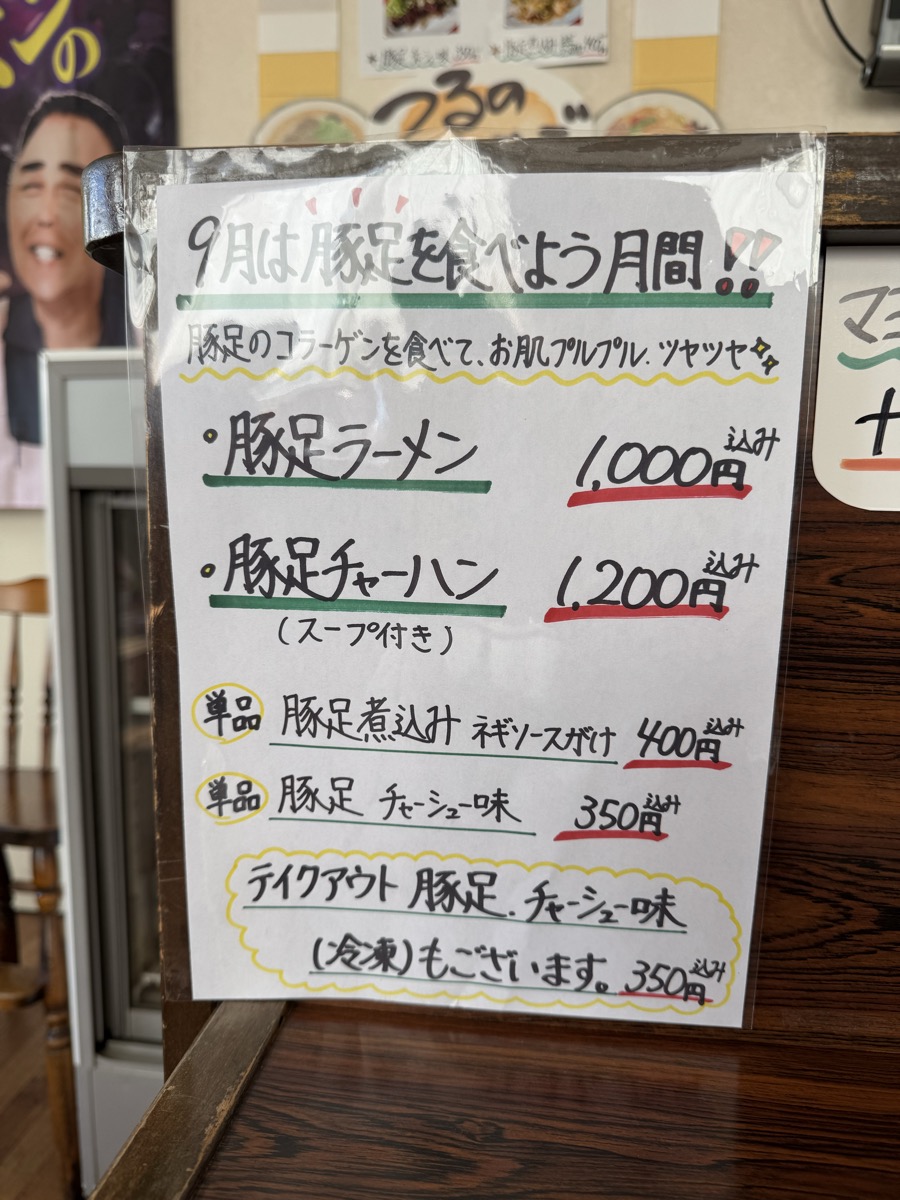 つるの
9月は豚足を食べよう月間!!
豚足のコラーゲンを食べて、お肌プルプル、ツヤツヤ
・豚足ラーメン 1,000円込み
・豚足チャーハン 1,200円込み
(スープ付き)
単品 豚足煮込み ネギソースがけ 400円込み
単品 豚足 チャーシュー味 350円込み
テイクアウト 豚足、チャーシュー味
(冷凍)もございます。350円込み
の
マヨ